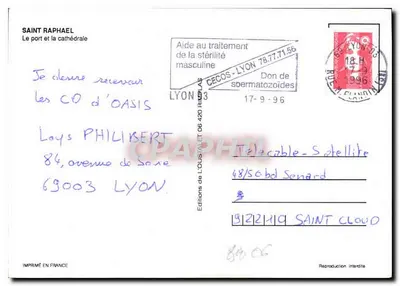 SAINT RAPHAEL
Le port et la cathédrale
Aide au traitement
de la stérilité
masculine
CECOS - LYON 78.77.71.56
Don de
spermatozoides
LYON 03
17-9-96
LYON 03
18 H
17-9
1996
Je désire recevoir
les CD d'OASIS
Loys PHILIBERT
84, avenue de Saxe
69003 LYON
Editions de
06
Télécable-Satellite
48/50 bd Senard
92210 SAINT CLOUD
IMPRIMÉ EN FRANCE
Reproduction interdite